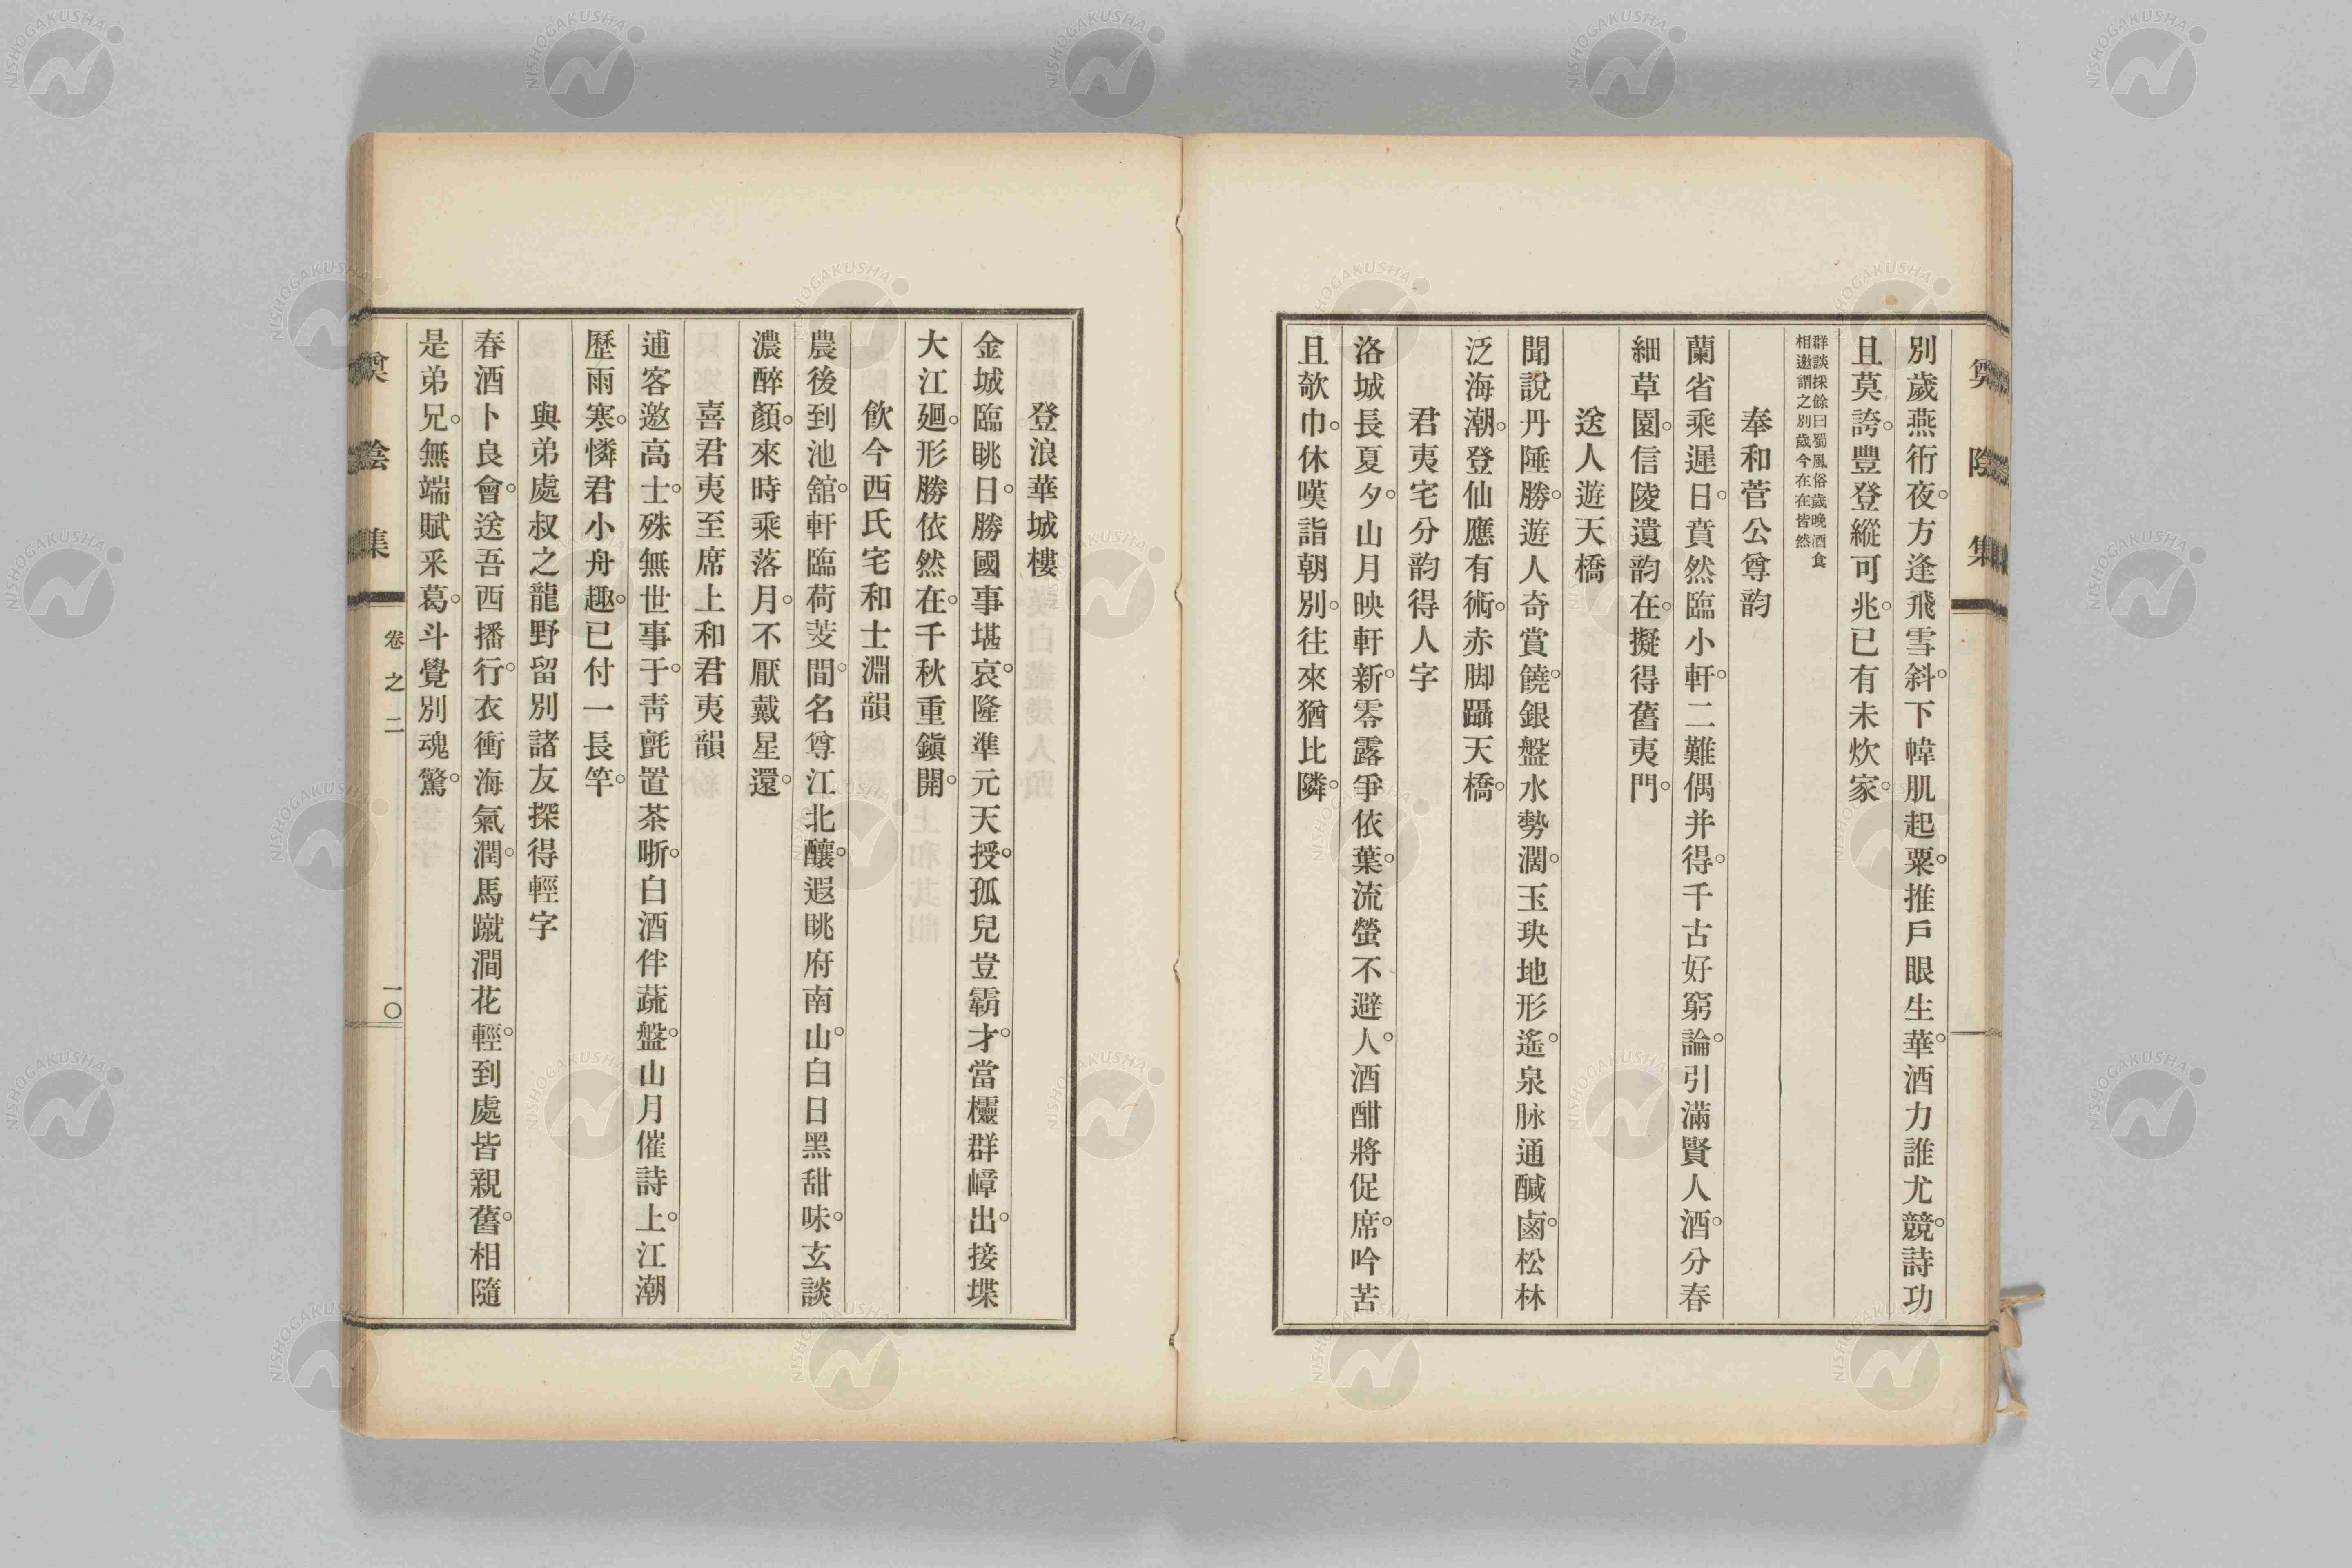 別歲燕術夜。方逢飛雪斜。下幃肌起粟。推戶眼生華。酒力誰尤競。詩功
且莫誇。豐登縱可兆。已有未炊家。
群談採餘曰蜀風俗歲晚酒食
相邀謂之別歲今在在皆然
奉和菅公尊韵
蘭省乘遲日。賁然臨小軒。二難偶并得。千古好窮論。引滿賢人酒。分春
細草園。信陵遺韵在。擬得舊夷門。
送人遊天橋
聞說丹陲勝。遊人奇賞饒。銀盤水勢濶。玉玦地形遙。泉脉通醎鹵。松林
泛海潮。登仙應有術。赤脚躡天橋。
君夷宅分韵得人字
洛城長夏夕。山月映軒新。零露爭依葉。流螢不避人。酒酣將促席。吟苦
且欹巾。休嘆詣朝別。往來猶比隣。
登浪華城樓
金城臨眺日。勝國事堪哀。隆準元天授。孤兒豈霸才。當櫺群嶂出。接堞
大江廻。形勝依然在。千秋重鎭開。
飲今西氏宅和士淵韻
農後到池舘。軒臨荷芰間。名尊江北釀。遐眺府南山。白日黑甜味。玄談
濃醉顏。來時乘落月。不厭戴星還。
喜君夷至席上和君夷韻
逋客邀高士。殊無世事于。靑氈置茶晣。白酒伴蔬盤。山月催詩上。江潮
歷雨寒。憐君小舟趣。已付一長竿。
與弟處叔之龍野留別諸友探得輕字
春酒卜良會。送吾西播行。衣衝海氣潤。馬蹴澗花輕。到處皆親舊。相隨
是弟兄。無端賦采葛。斗覺別魂驚。
卷之二
一〇